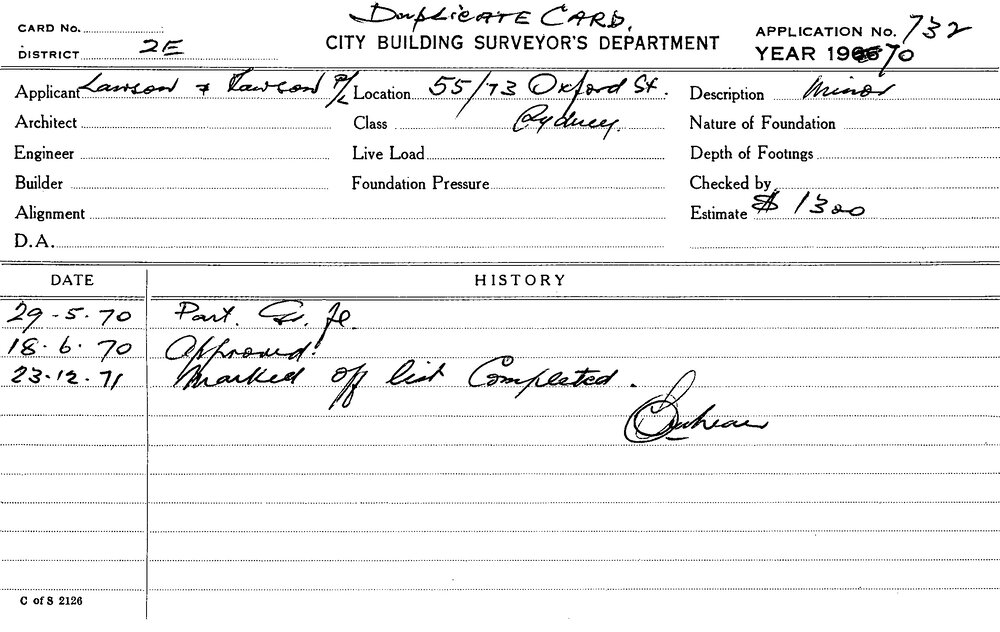 Duplicate Card.
CARD No.
DISTRICT 2E
CITY BUILDING SURVEYOR'S DEPARTMENT
APPLICATION No. 732
YEAR 1970
Applicant Lawson & Lawson P/L Location 55/73 Oxford St. Description Minor
Architect Class Sydney. Nature of Foundation
Engineer Live Load Depth of Footings
Builder Foundation Pressure Checked by
Alignment Estimate $ 1300
D.A.
DATE HISTORY
29-5-70 Part. Gr. fl.
18.6.70 Approved.
23.12.71 Marked off list Completed.
C of S 2126